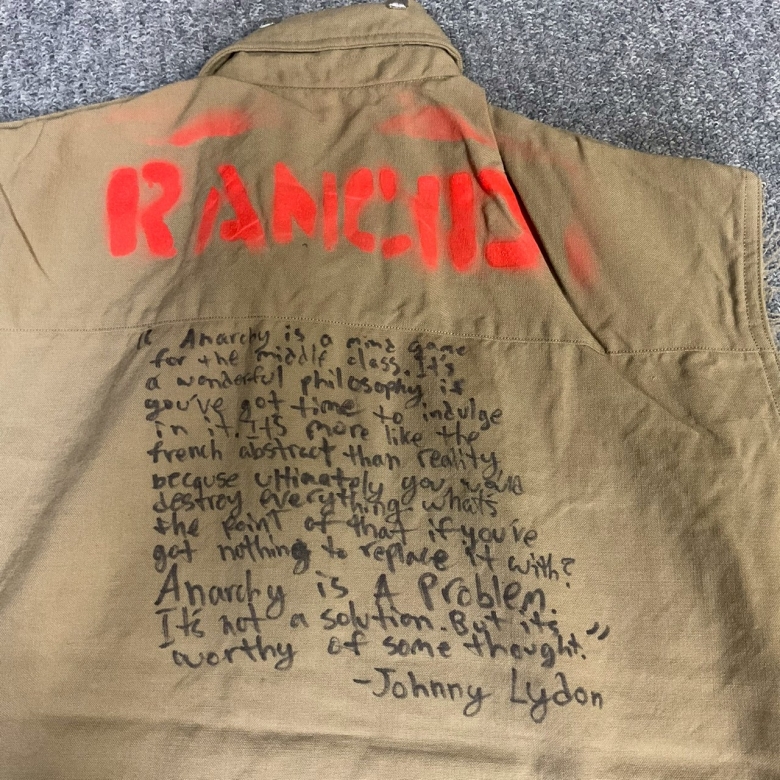 RANCID
" Anarchy is a mind game
for the middle class. It's
a wonderful philosophy if
you've got time to indulge
in it. It's more like the
french abstract than reality,
because ultimately you would
destroy everything. what's
the point of that if you've
got nothing to replace it with?
Anarchy is A Problem.
It's not a solution. But its
worthy of some thought."
-Johnny Lydon